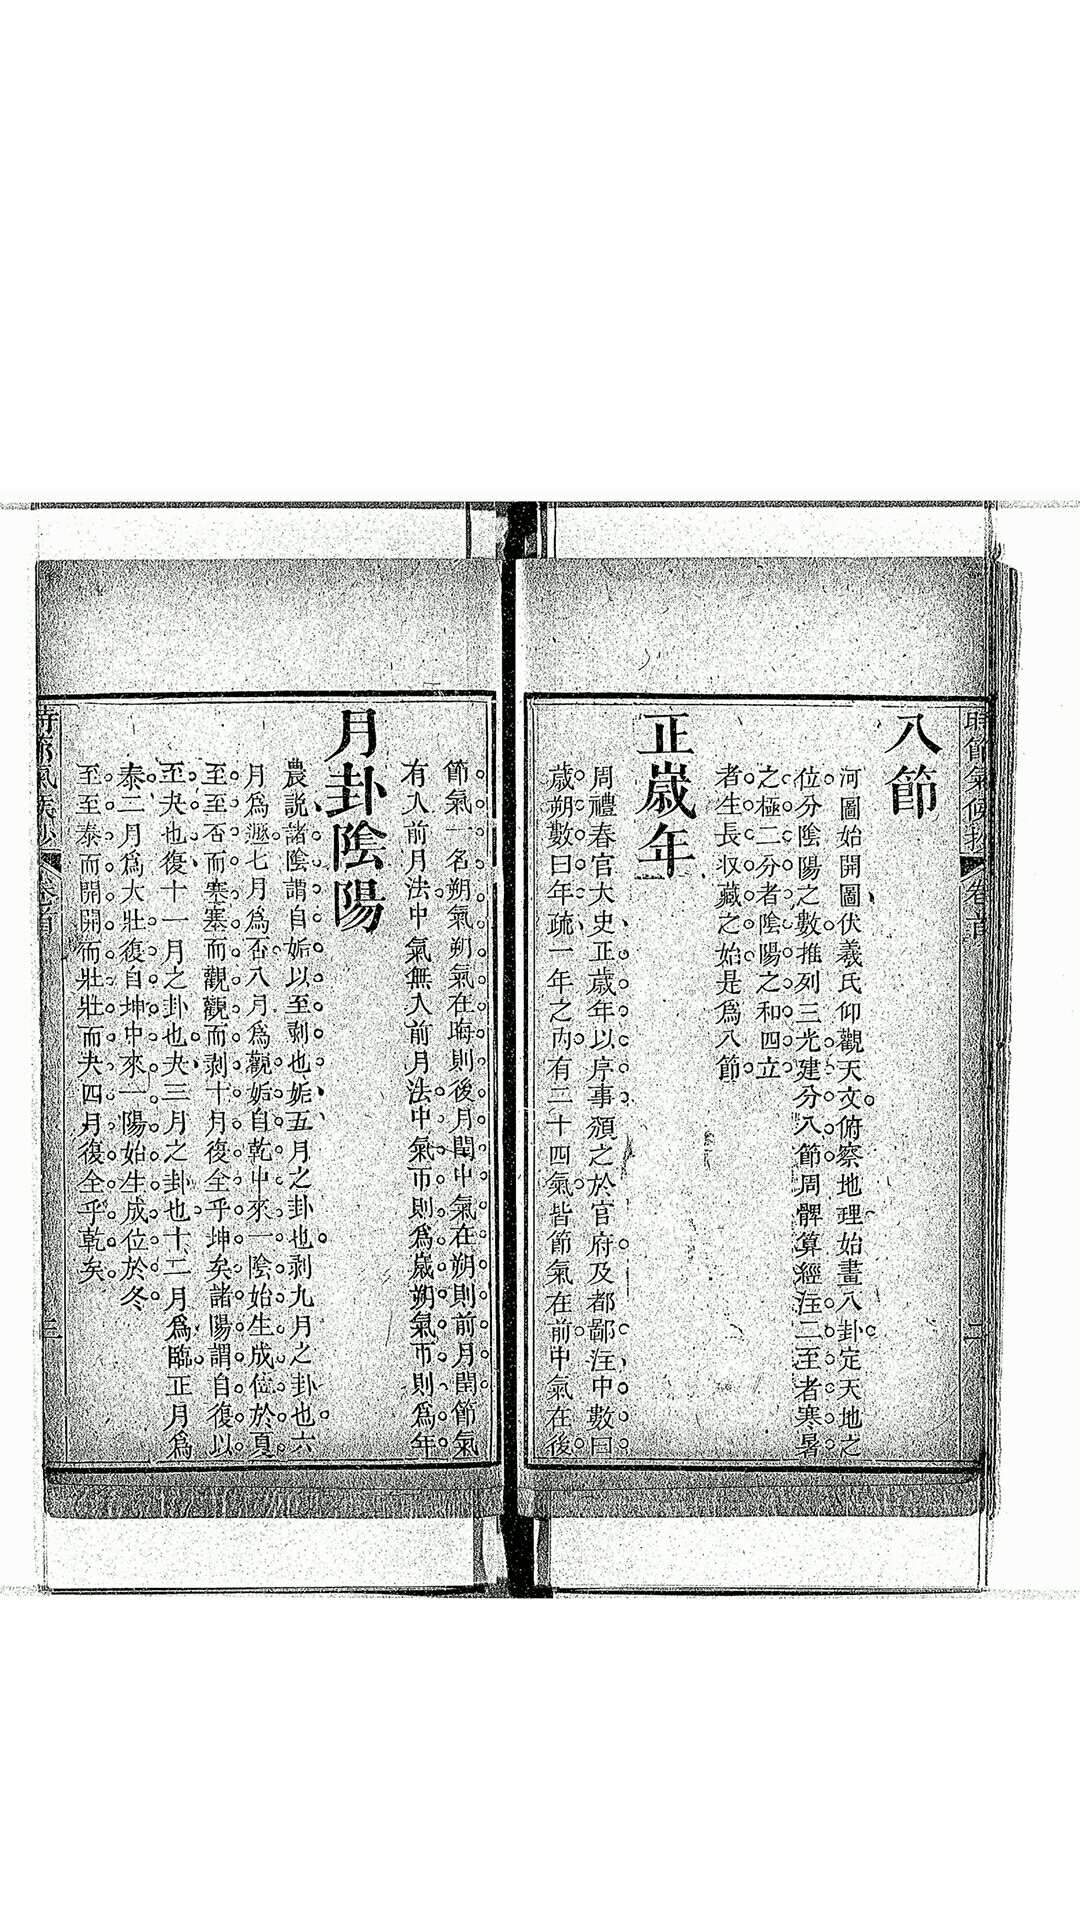 時節氣候抄 卷首 二
八節
河圖始開圖伏羲氏仰觀天文俯察地理始畫八卦定天地之
位分陰陽之數推列三光建分八節周髀算經注二至者寒暑
之極二分者陰陽之和四立
者生長収藏之始是爲八節
正歲年
周禮春官大史正歲年以序事頒之於官府及都鄙注中數曰
歲朔數曰年疏一年之內有二十四氣皆節氣在前中氣在後
節氣一名朔氣朔氣在晦則後月閏中氣在朔則前月閏節氣
有入前月法中氣無入前月法中氣帀則爲歲朔氣帀則爲年
月卦陰陽
農説諸陰謂自姤以至剥也姤五月之卦也剥九月之卦也六
月爲遯七月爲否八月爲觀姤自乾中來一陰始生成位於夏
至至否而塞塞而觀觀而剥十月復全乎坤矣諸陽謂自復以
至夬也復十一月之卦也夬三月之卦也十二月爲臨正月爲
泰二月爲大壯復自坤中來一陽始生成位於冬
至至泰而開開而壯壯而夬四月復全乎乾矣
時節氣候抄 卷首 三